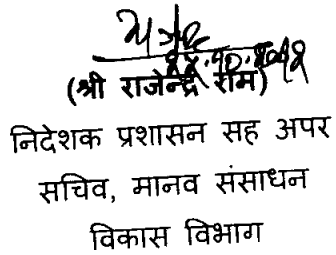 (श्री राजेन्द्र राम)
निदेशक प्रशासन सह अपर
सचिव, मानव संसाधन
विकास विभाग